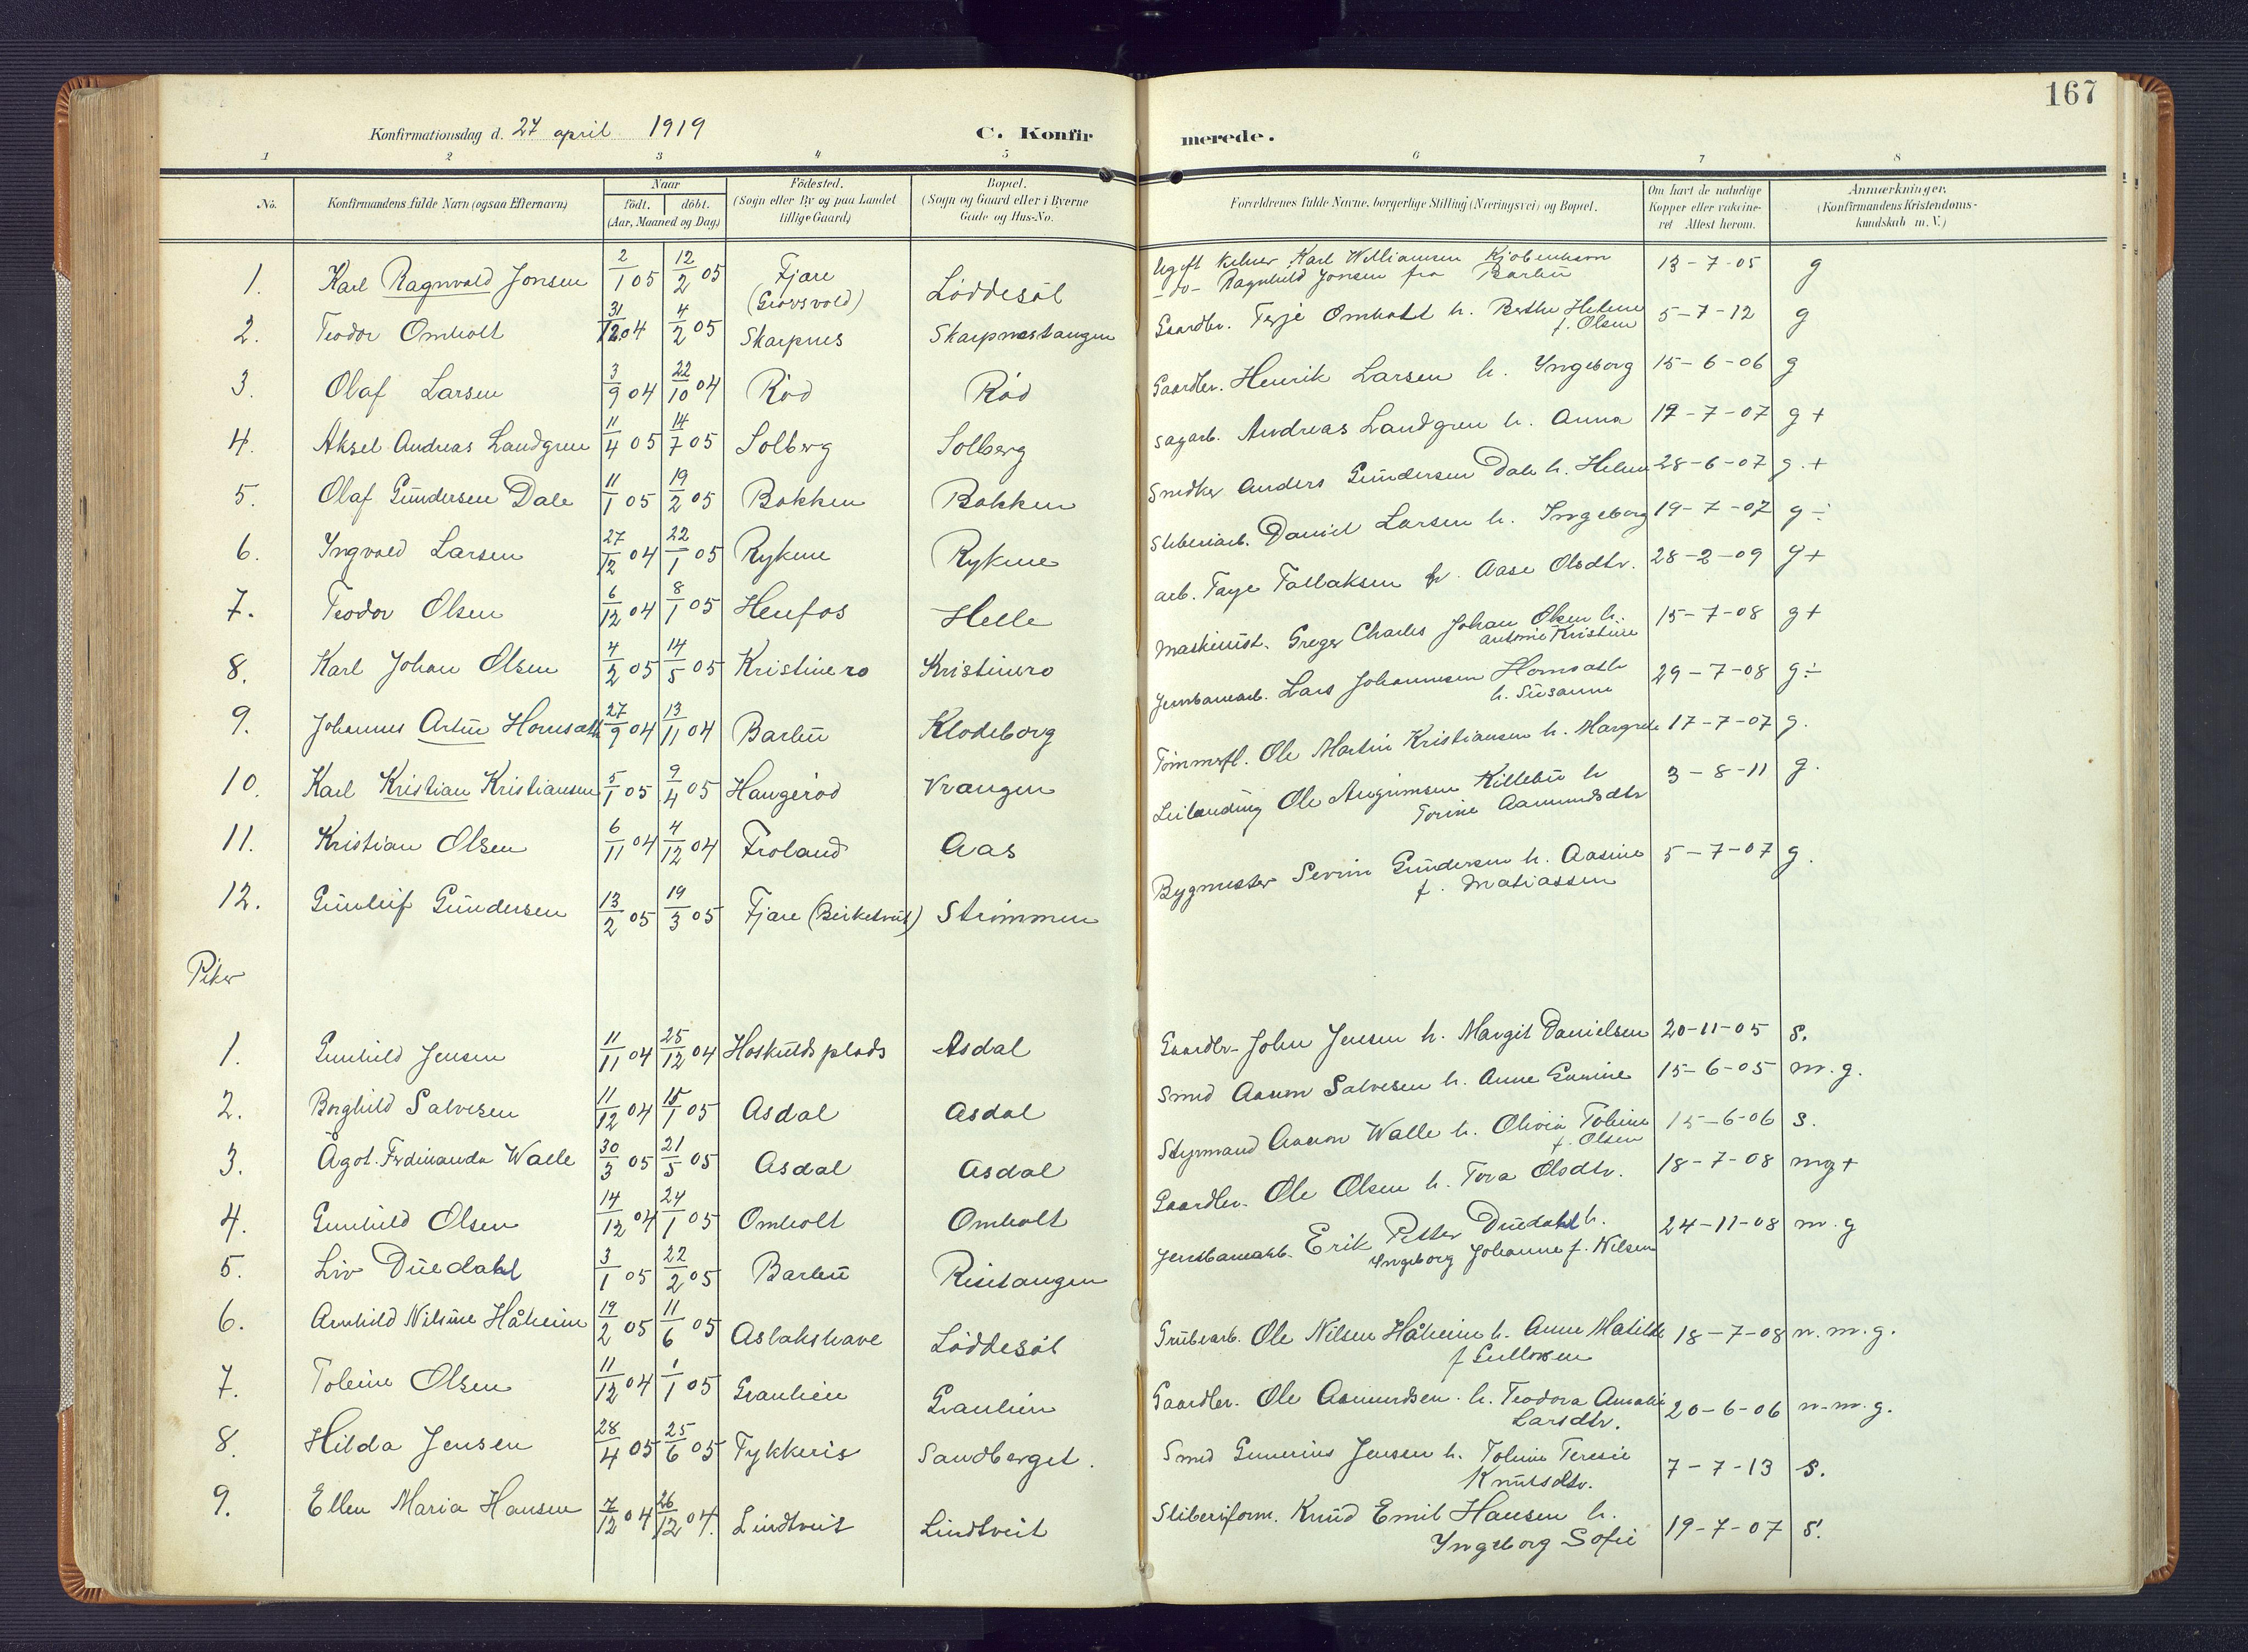 167
Konfirmationsdag d. 27 april 1919 C. Konfirmerede.
1 2 3 4 5 6 7 8
No. Konfirmandens fulde Navn (ogsaa Efternavn) Naar födt. döbt. (Aar, Maaned og Dag) Födested. (Sogn eller By og paa Landet tillige Gaard) Bopæl. (Sogn og Gaard eller i Byerne Gade og Hus-No. Forældrenes fulde Navne, borgerlige Stilling (Næringsvei) og Bopæl. Om havt de naturlige Kopper eller vakcineret Attest herom. Anmærkninger. (Konfirmandens Kristendomskundskab m.V.)
1. Karl Ragnvald Jonsen 2/1 05 12/2 05 Fjære (Groosvold) Löddesöl Ugift Kelner Karl Williamsen Kjöbenhavn -do- Ragnhild Jonsen fra Barbu 13-7-05 g
2. Teodor Omholt 31/12 04 4/2 05 Skarpnes Skarpnestangen Gaardbr. Terje Omholt h. Berthe Helene f. Olsen 5-7-12 g
3. Olaf Larsen 3/9 04 22/10 04 Röd Röd Gaardbr. Henrik Larsen h. Yngeborg 15-6-06 g
4. Aksel Andreas Landgren 11/4 05 14/7 05 Solberg Solberg Sagarb. Andreas Landgren h. Anna 19-7-07 g +
5. Olaf Gundersen Dale 11/1 05 19/2 05 Bakken Bakken Snedker Anders Gundersen Dale h. Helene 28-6-07 g. +
6. Yngvald Larsen 27/12 04 22/1 05 Rykene Rykene Sliberiarb. Daniel Larsen h. Ingeborg 19-7-07 g ÷
7. Teodor Olsen 6/12 04 8/1 05 Herefos Helle arb. Taye Tallaksen h. Aase Olsdtr. 28-2-09 g +
8. Karl Johan Olsen 4/2 05 14/5 05 Kristinero Kristinero Maskinist. Greger Charles Johan Olsen h. Antonie Kristine 15-7-08 g +
9. Johannes Artur Homsath 27/9 04 13/11 04 Barbu Klodeborg Jernbanearb. Lars Johannesen Homsath h. Susanne 29-7-08 g ÷
10. Karl Kristian Kristiansen 5/1 05 9/4 05 Haugeröd Vrangen Tömmerfl. Ole Martin Kristiansen h. Margrete 17-7-07 g.
11. Kristian Olsen 6/11 04 4/12 04 Froland Aas Leilending Ole Angrimsen Killebu h Torine Aamundsdtr 3-8-11 g.
12. Gunleif Gundersen 13/2 05 19/3 05 Fjære (Birketveit) Strömmen Bygmester Severin Gundersen h. Aasine f. Matiassen 5-7-07 g.
Piker
1. Gunhild Jensen 11/11 04 25/12 04 Hoskuldsplads Asdal Gaardbr- John Jensen h. Margit Danielsen 20-11-05 S.
2. Borghild Salvesen 11/12 04 15/1 05 Asdal Asdal Smed Aanon Salvesen h. Anne Gunine 15-6-05 m.g.
3. Ågot Ferdinanda Walle 30/3 05 21/5 05 Asdal Asdal Styrmand Aanon Walle h. Olivia Tobine f. Olsen 15-6-06 S.
4. Gunhild Olsen 14/12 04 24/1 05 Omholt Omholt Gaardbr. Ole Olsen h. Tora Olsdtr. 18-7-08 mg +
5. Liv Duedahl 3/1 05 22/2 05 Barbu Risetangen Jernbanearb. Erik Petter Duedahl h. Yngeborg Johanne f. Nilsen 24-11-08 m.g
6. Arnhild Nilsine Håheim 19/2 05 11/6 05 Aslakshave Löddesöl Grubearb. Ole Nilsen Håheim h. Anne Matilde f Gullovsen 18-7-08 n.m.g.
7. Tobine Olsen 11/12 04 1/1 05 Graulien Graulien Gaardbr. Ole Aamundsen h. Teodora Amalie Larsdtr. 20-6-06 n.m.g.
8. Hilda Jensen 28/4 05 25/6 05 Tykkeris Sandberget. Smed Gunerius Jensen h. Tobine Teresie Knutsdtr. 7-7-13 S.
9. Ellen Maria Hansen 7/12 04 26/12 04. Lindtveit Lindtveit Sliberiform. Knud Emil Hansen h. Yngeborg Sofie 19-7-07 S.